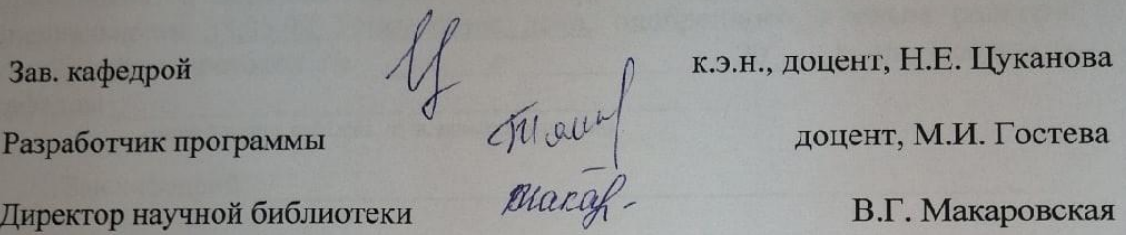 Зав. кафедрой к.э.н., доцент, Н.Е. Цуканова
Разработчик программы доцент, М.И. Гостева
Директор научной библиотеки Макар В.Г. Макаровская